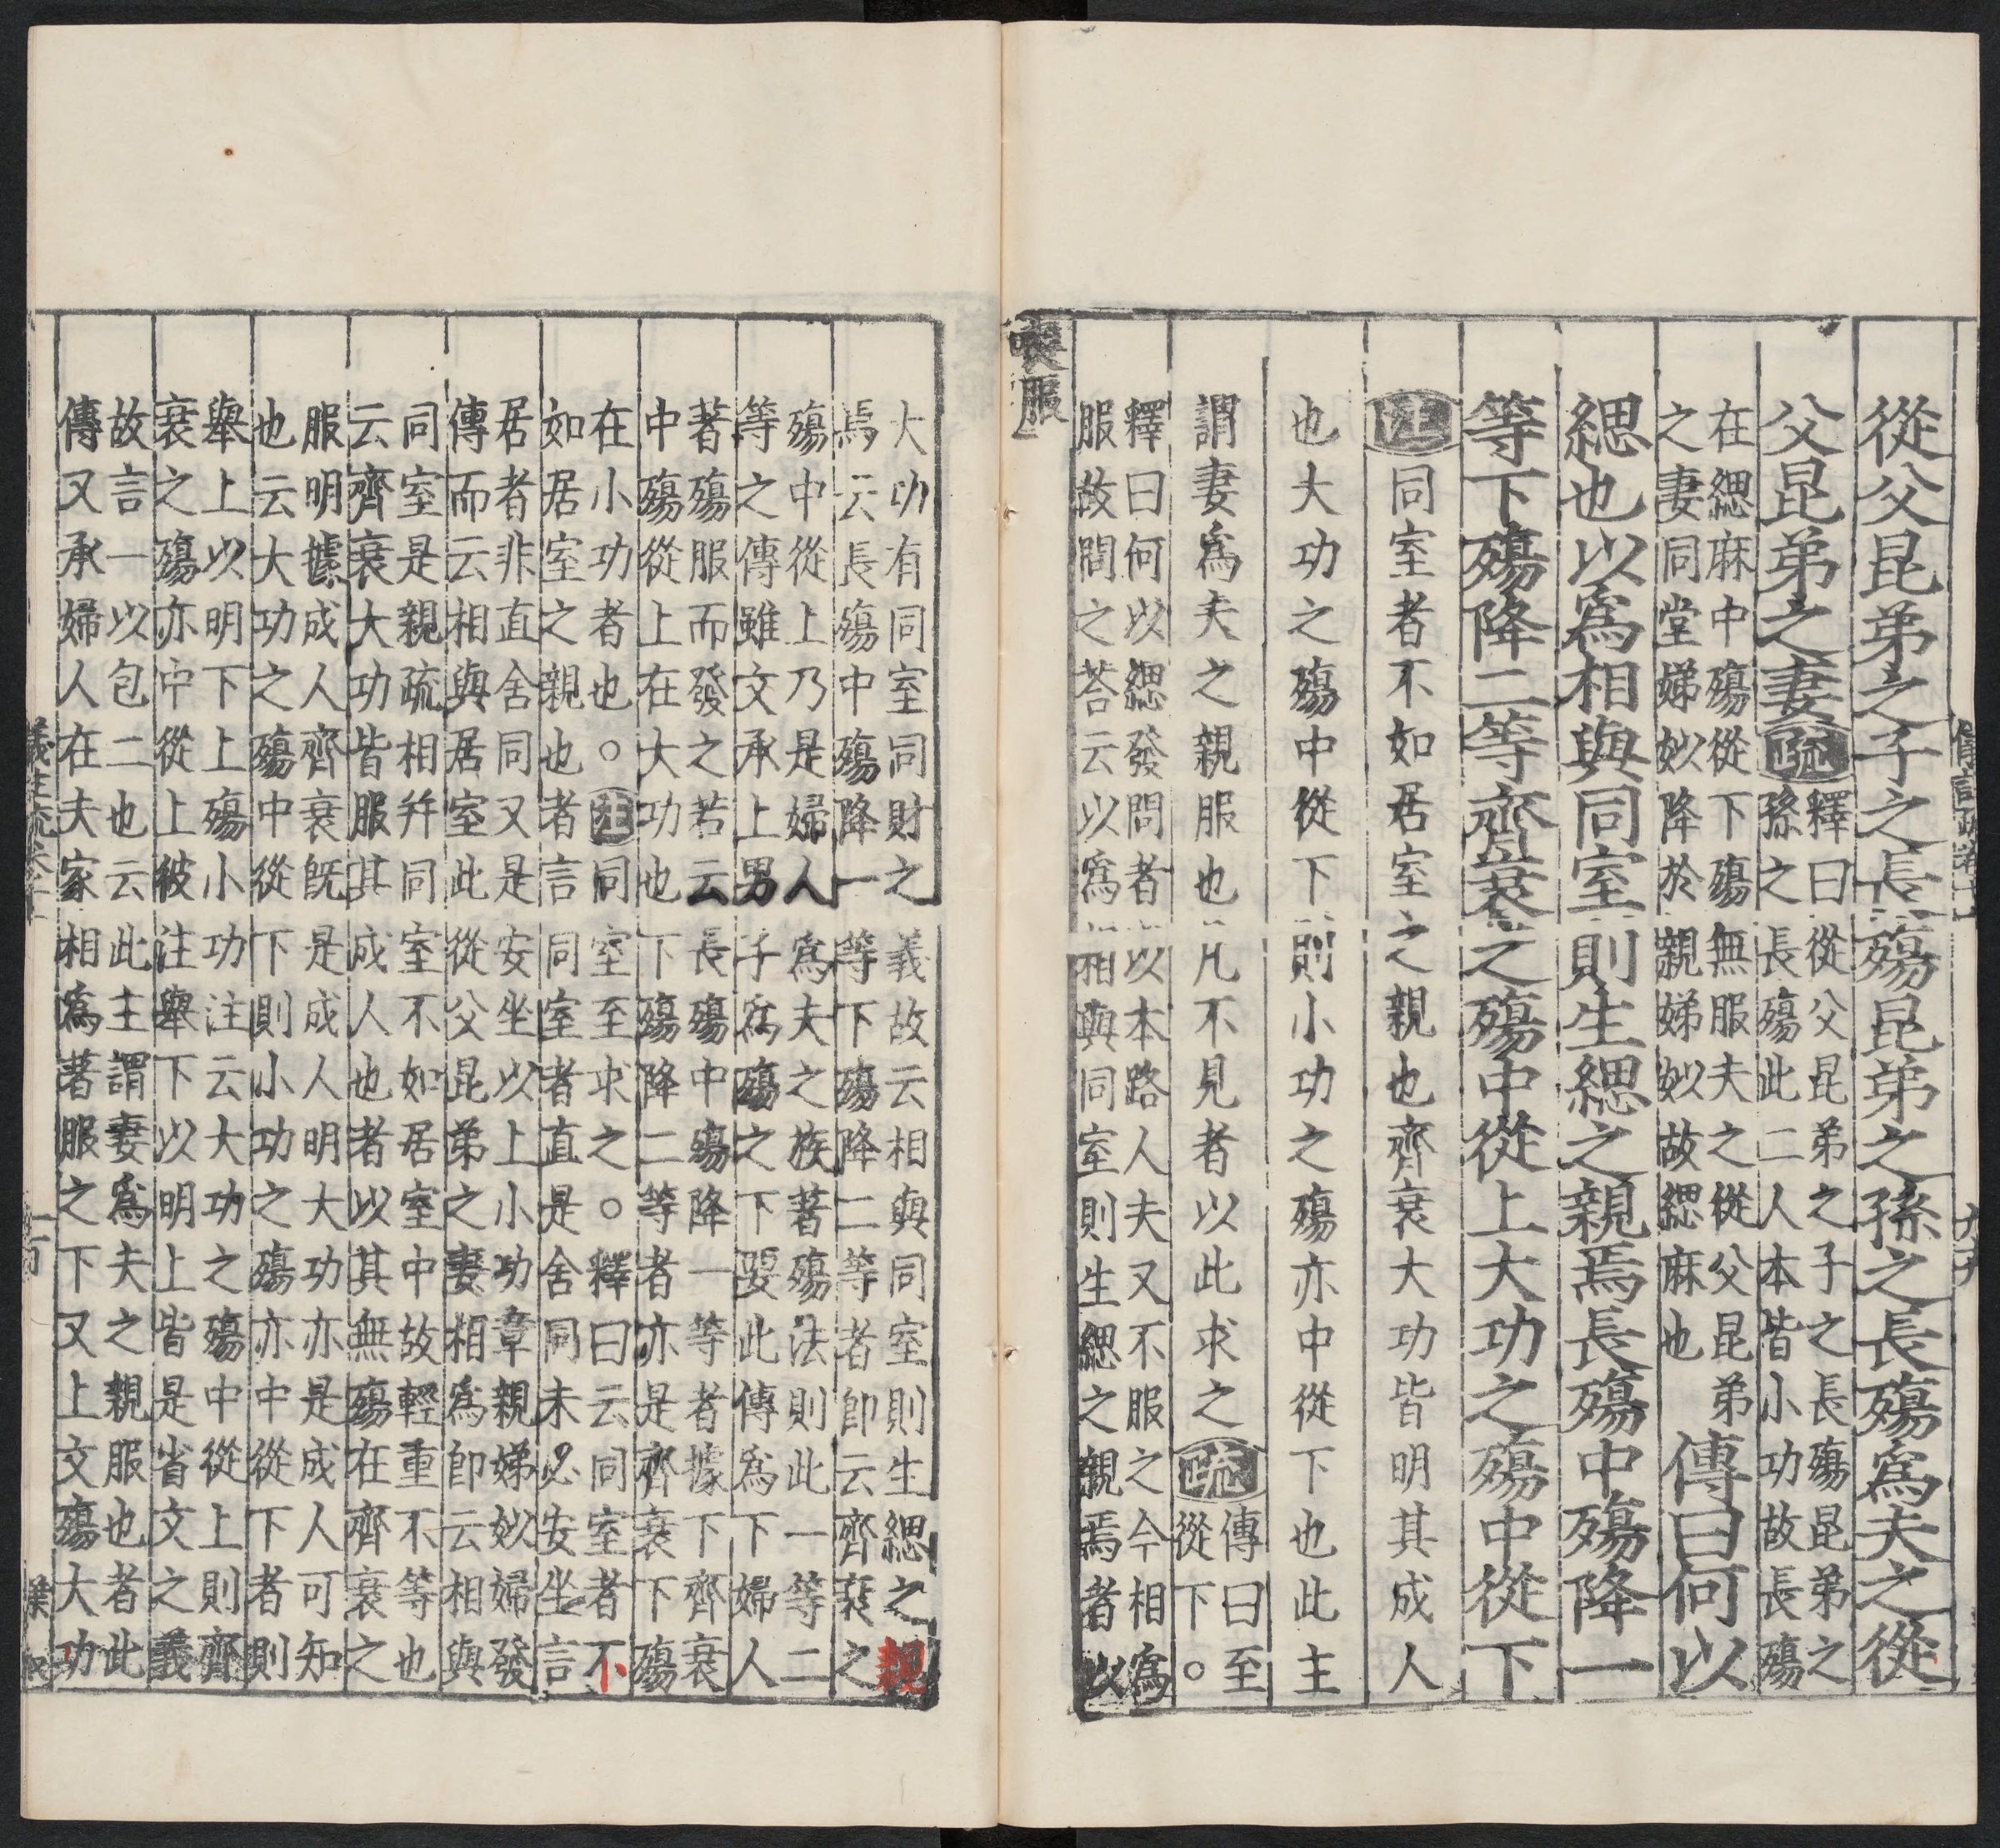 從父昆弟之子之長殤昆弟之孫之長殤爲夫之從
父昆弟之妻疏釋曰從父昆弟之子之長殤昆弟之
孫之長殤此二人本皆小功故長殤
在緦麻中殤從下殤無服夫之從父昆弟
之妻同堂娣姒降於親娣姒故緦麻也
傳曰何以
緦也以爲相與同室則生緦之親焉長殤中殤降一
等下殤降二等齊衰之殤中從上大功之殤中從下
注同室者不如居室之親也齊衰大功皆明其成人
也大功之殤中從下則小功之殤亦中從下也此主
謂妻爲夫之親服也凡不見者以此求之疏傳曰至
從下。
釋曰何以緦發問者以本路人夫又不服之今相爲
服故問之荅云以爲相與同室則生緦之親焉者以
喪服
大功有同室同財之義故云相與同室則生緦之親
焉云長殤中殤降一等下殤降二等者即云齊衰之
殤中從上乃是婦人爲夫之族著殤法則此一等二
等之傳雖文承上男子爲殤之下要此傳爲下婦人
著殤服而發之若云長殤中殤降一等者據下齊衰
中殤從上在大功也下殤降二等者亦是齊衰下殤
在小功者也。注同室至求之。釋曰云同室者不
如居室之親也者言同室者直是舍同未必安坐言
居者非直舍同又是安坐以上小功章親娣姒婦發
傳而云相與居室此從父昆弟之妻相爲即云相與
同室是親疏相并同室不如居室中故輕重不等也
云齊衰大功皆服其成人也者以其無殤在齊衰之
服明據成人齊衰旣是成人明大功亦是成人可知
也云大功之殤中從下則小功之殤亦中從下者則
舉上以明下上殤小功注云大功之殤中從上則齊
衰之殤亦中從上彼注舉下以明上皆是省文之義
故言一以包二也云此主謂妻爲夫之親服也者此
傳又承婦人在夫家相爲著服之下又上文殤大功